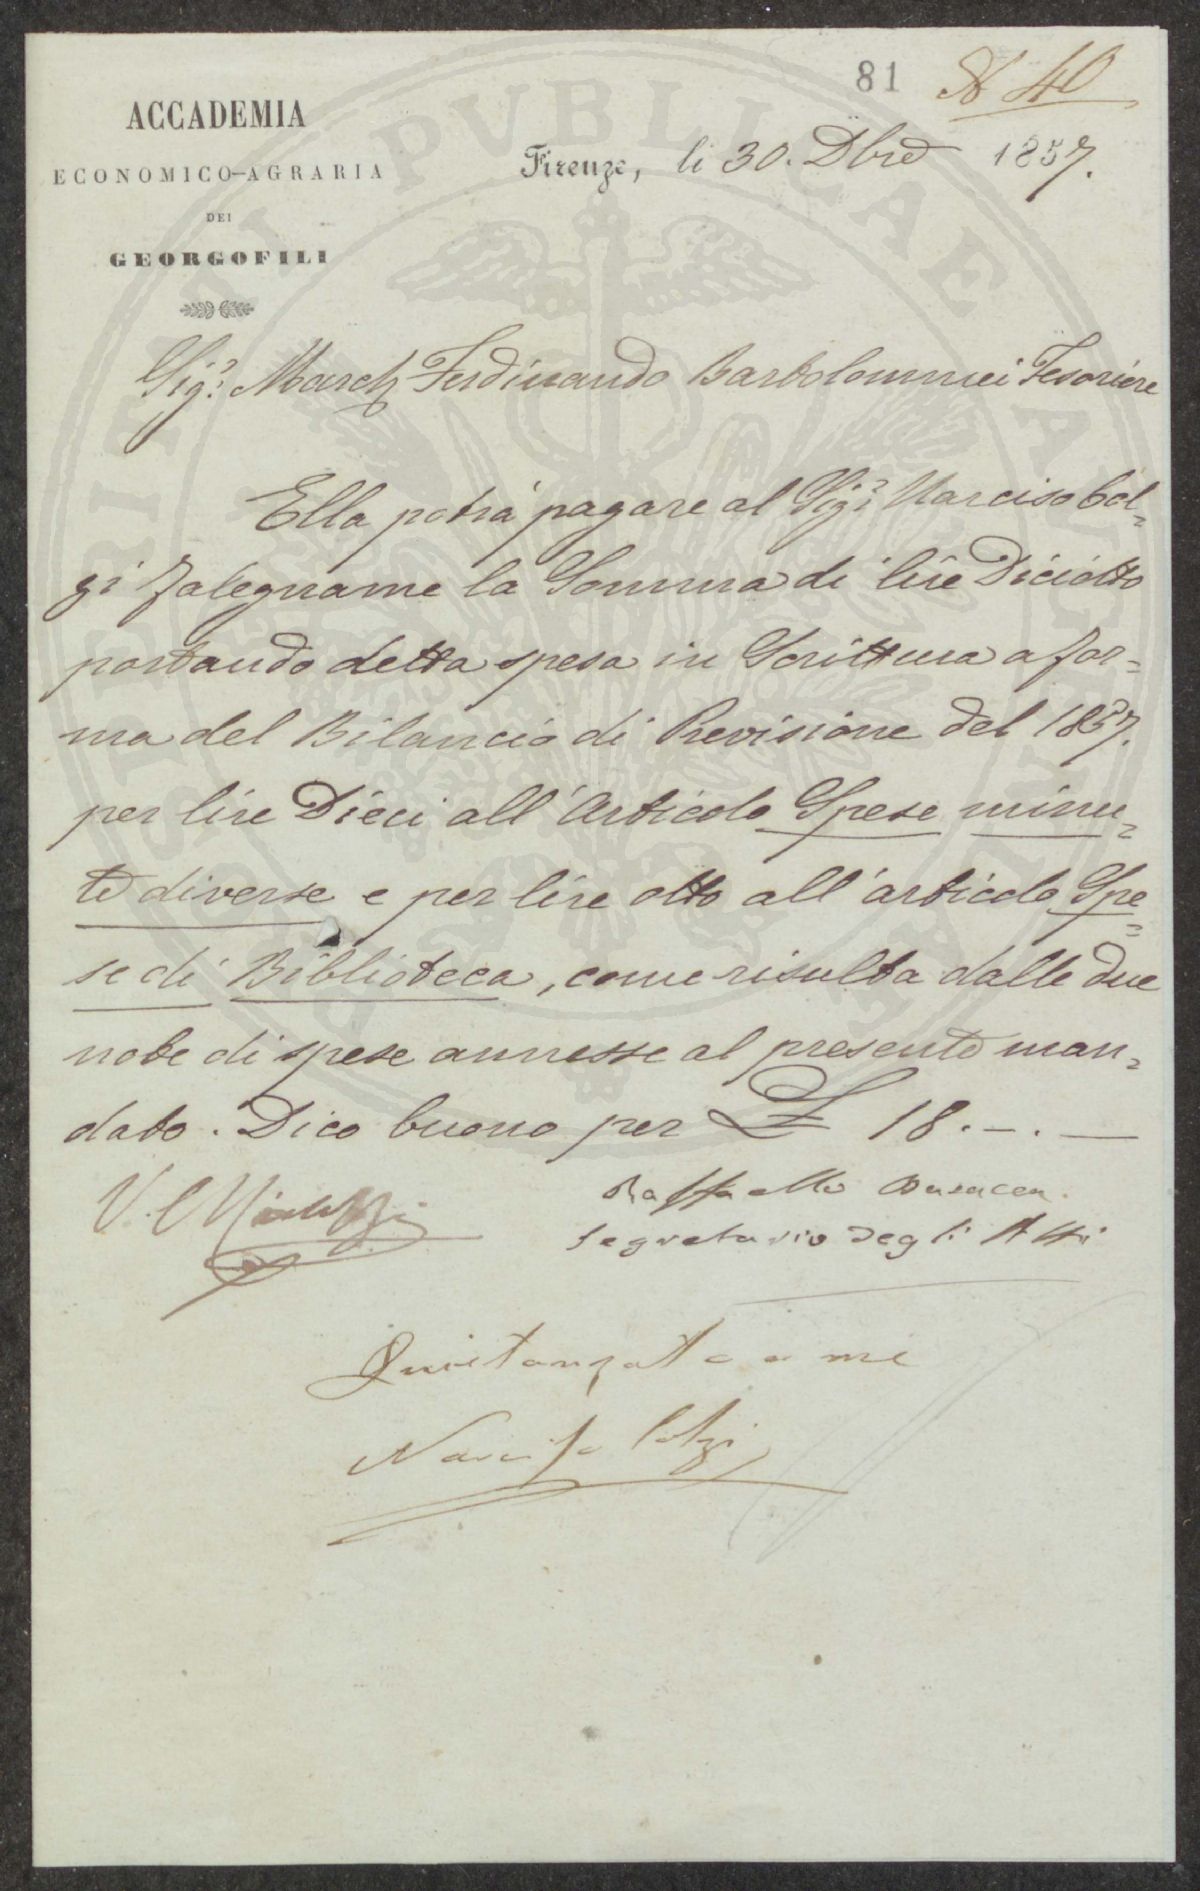 81 N 40
ACCADEMIA
ECONOMICO-AGRARIA
DEI
GEORGOFILI
Firenze, li 30. Xbre 1857.
Sigr: March Ferdinando Bartolommei Tesoriere
Ella potrà pagare al Sigr: Narciso Col=
zi Falegname la Somma di lire Diciotto
portando detta spesa in Scrittura a for=
ma del Bilancio di Previsione del 1857.
per lire Dieci all'Articolo Spese minu=
te diverse e per lire otto all'articolo Spe=
se di Biblioteca, come risulta dalle due
note di spese annesse al presente man=
dato. Dico buono per £ 18.-.-
Raffaello Busacca
Segretario degli Atti
Quietanzato a me
Narciso Colzi